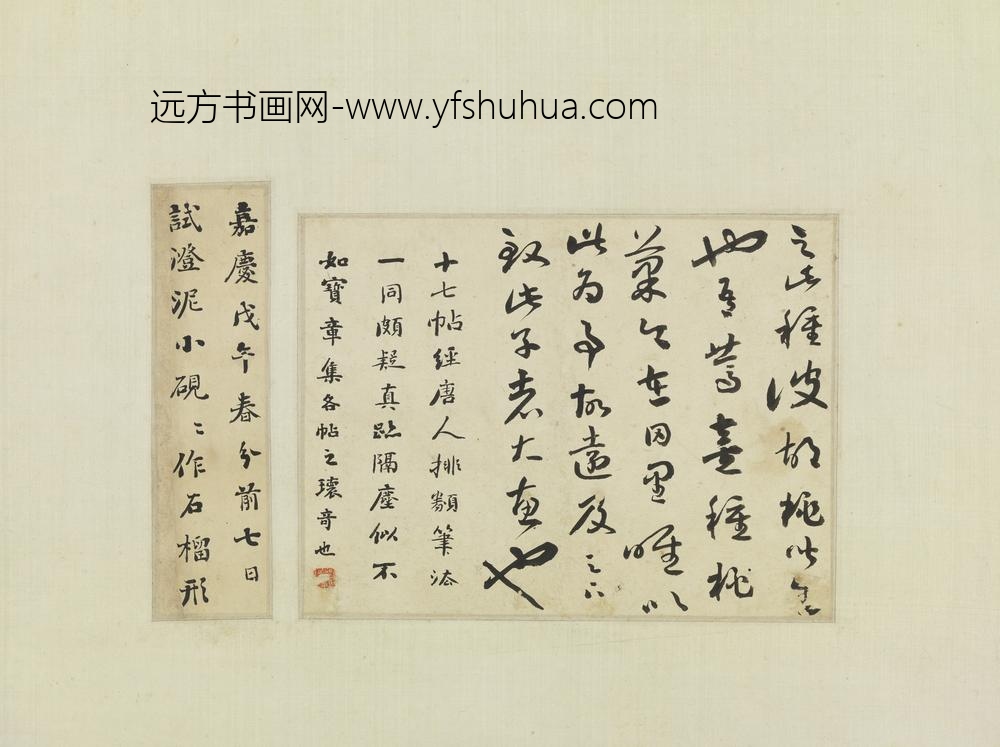 远方书画网-www.yfshuhua.com
之此種彼胡桃皆生
也吾篤喜種桃
菓今在田里唯以
此為事故遠及足下
致此子者大惠也
十七帖經唐人排類筆法
一同頗疑真跡隔塵似不
如寶章集各帖之瓌奇也
嘉慶戊午春分前七日
試澄泥小硯〻作石榴形